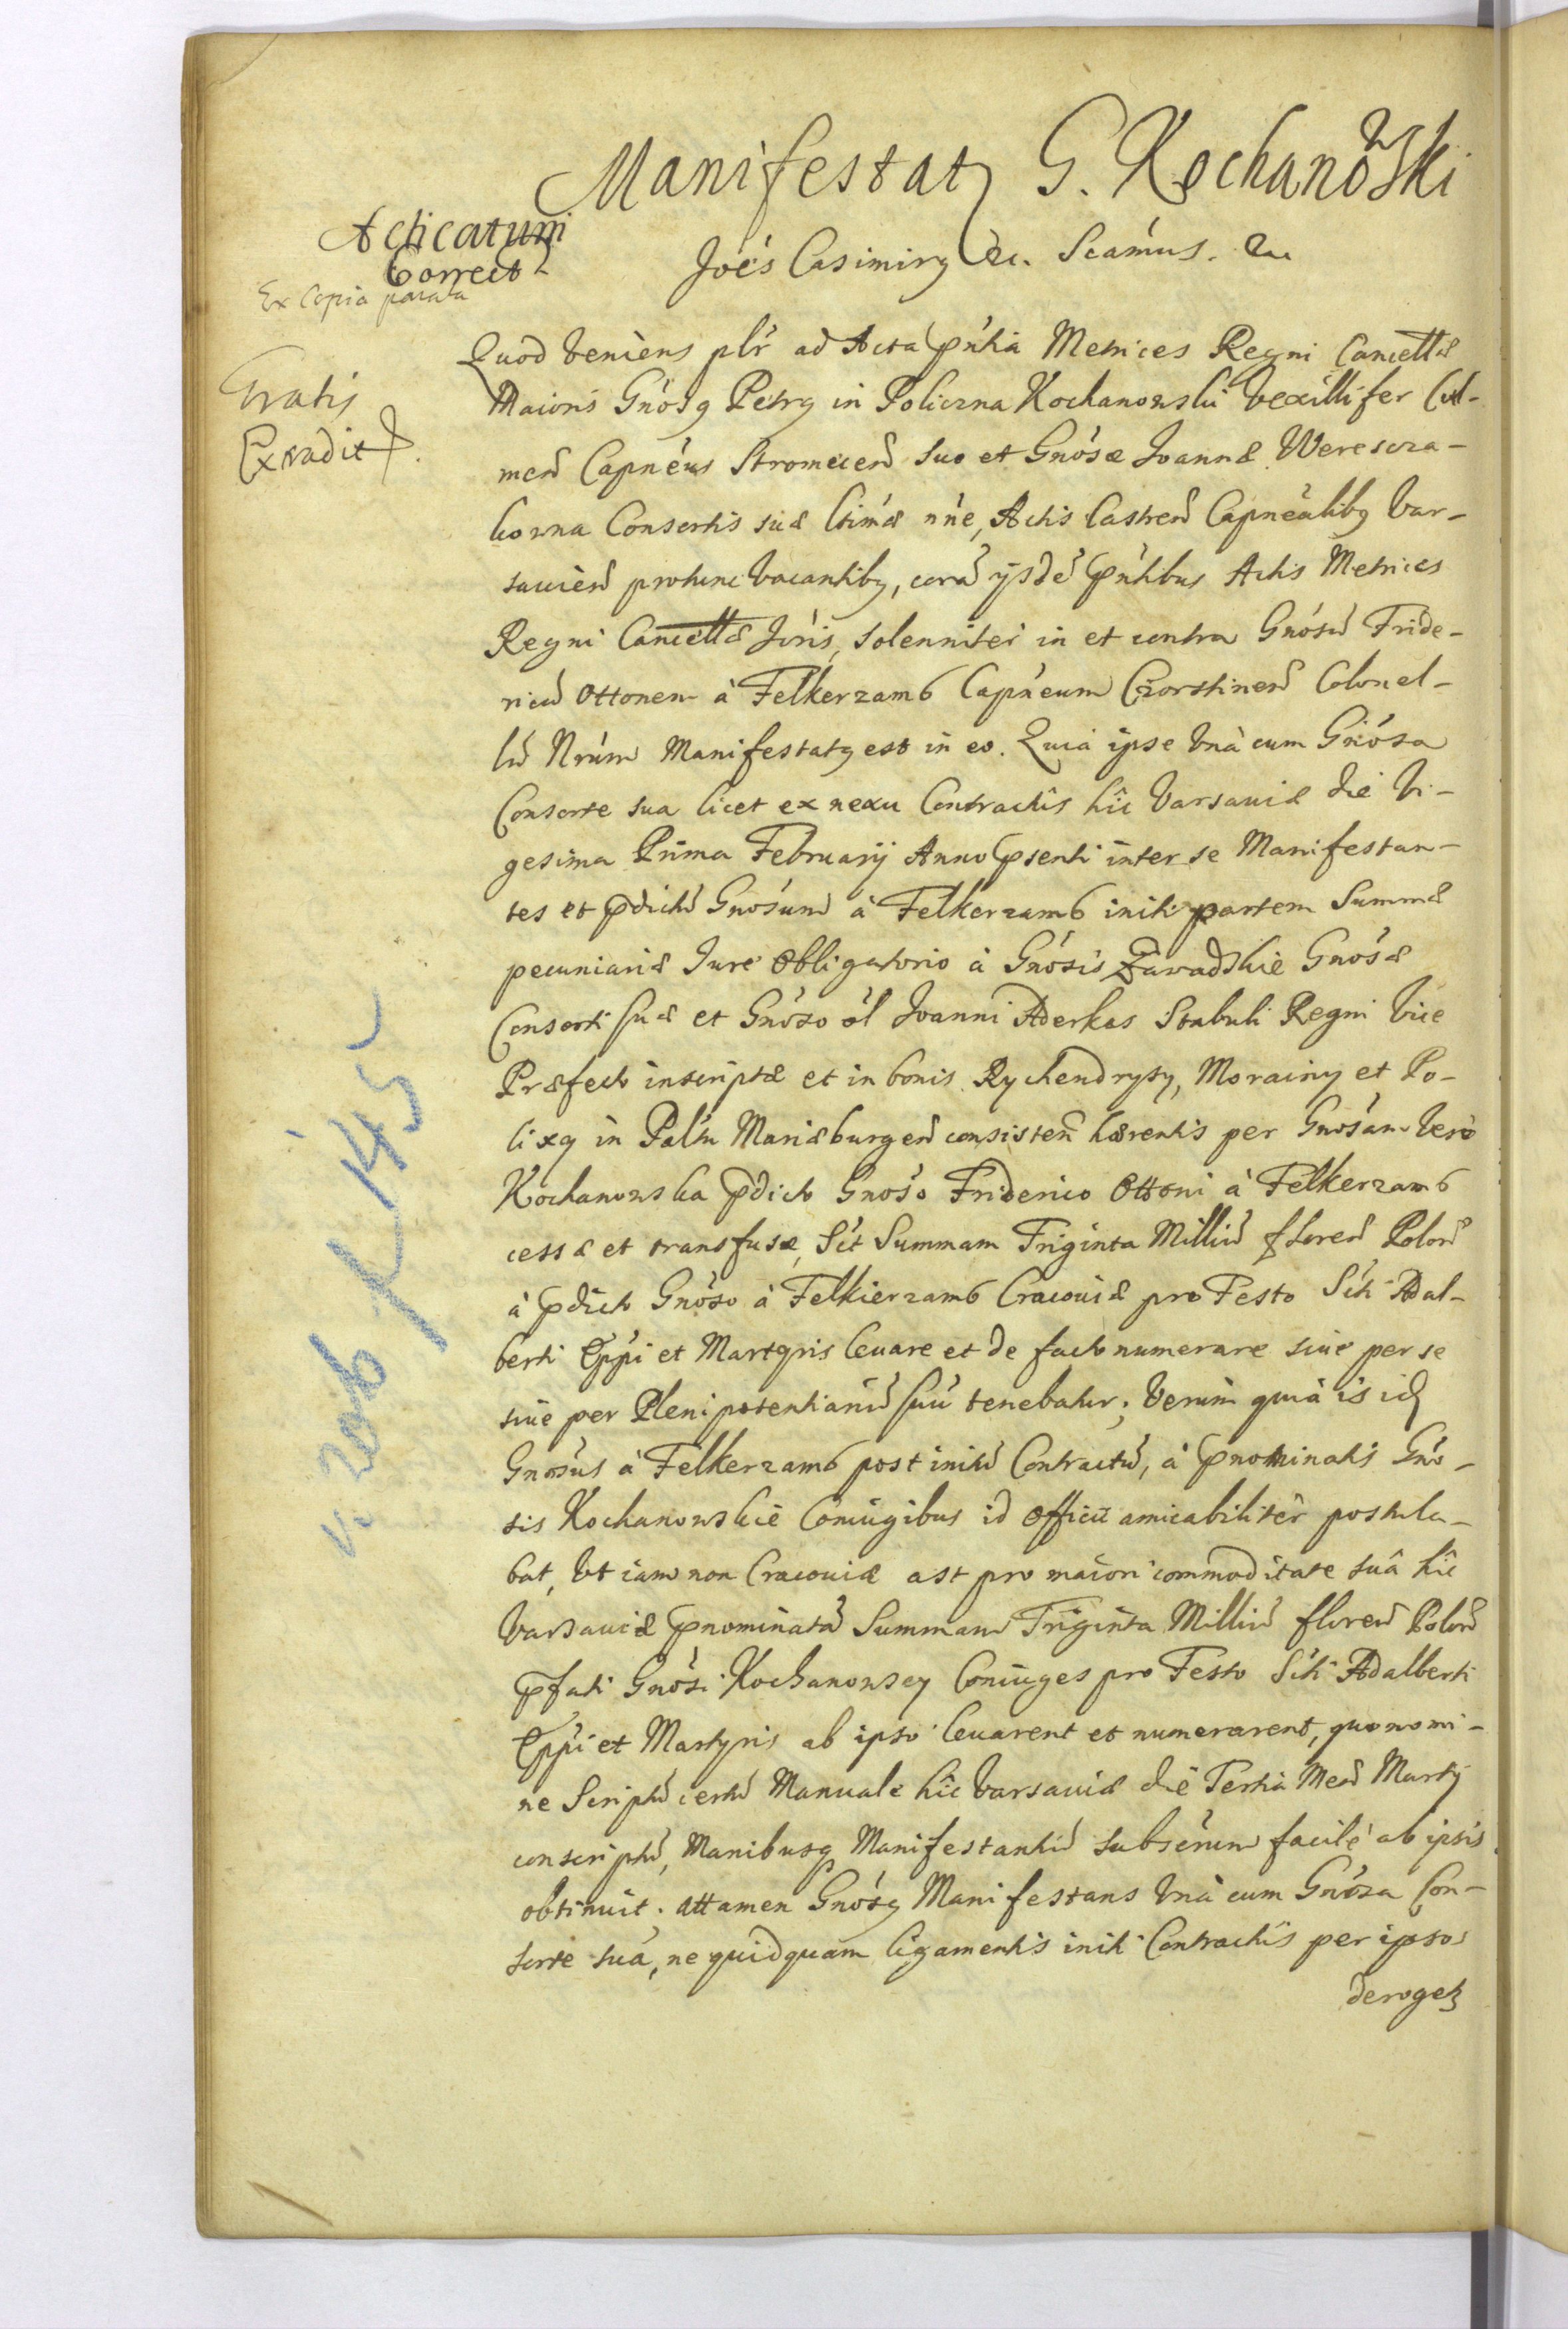 Manifestatq G. Kochanowski
Acticatum
Correct
Ex Copia parata
Joe's Casimirq &c. Scamus. &c
Quod veniens plr ad Acta pntia Metrices Regni Cancellæ
Gratis
Extradit
Maioris Gnosq Petrq in Policzna Kochanowski Vexillifer Cul-
men Capneus Stromecen suo et Gnosæ Joannæ Weresczа-
kowna Consortis suæ ltimæ nne, Actis Castren Capnealibq Var-
sauien protunc vacantibq, cora ijsde pntibus Actis Metrices
Regni Cancellæ Joris, solenniter in et contra Gnosu Fride-
ricu Ottonem à Felkerzamb Capneum Czorstinen Colonel-
lu Nrum Manifestatq est in eo. Quia ipse Vnà cum Gnosa
Consorte sua licet ex nexu Contractûs hîc Varsauiæ die Vi-
gesima Prima Februarij Anno psenti inter se Manifestan-
tes et pdictu Gnosum à Felkerzamb initi partem Summæ
pecuniariæ Jure Obligatorio à Gnosis Zawadskie Gnosæ
Consorti suæ et Gnoso ol Joanni Aderkas Stabuli Regni Vice
Præfecto inscriptæ et in bonis Rychendrysy, Morainy et Po-
lixq in Paltu Mariæburgen consisten hærentis per Gnosam vero
Kochanowska pdicto Gnoso Friderico Ottoni à Felkerzamb
cessæ et transfusæ, Sct Summam Triginta Milliu floren Polon
à pdicto Gnoso à Felkierzamb Cracouiæ pro Festo Scti Adal-
berti Eppi et Martyris leuare et de facto numerare siue per se
siue per Plenipotentiariu suu tenebatur; Verum quia is id
Gnosus à Felkerzamb post initu Contractu, à pnominatis Gno-
sis Kochanowskie Coniugibus id officii amicabiliter postula-
bat, Vt iam non Cracouiæ ast pro maiori commoditate suâ hîc
Varsauiæ pnominata Summam Triginta Milliu floren Polon
pfati Gnosi Kochanowscy Coniuges pro Festo Scti Adalberti
Eppi et Martyris ab ipso leuarent et numerarent, quo nomi-
ne Scriptu certu Manuale hîc Varsauiæ die Tertia Men Martij
conscriptu, Manibusq Manifestantiu subscrum facile ab ipsis
obtinuit. attamen Gnosq Manifestans Vnà cum Gnosa Con-
sorte suâ, ne quidquam ligamentis initi Contractûs per ipsos
derogetz
v. zob. p 145